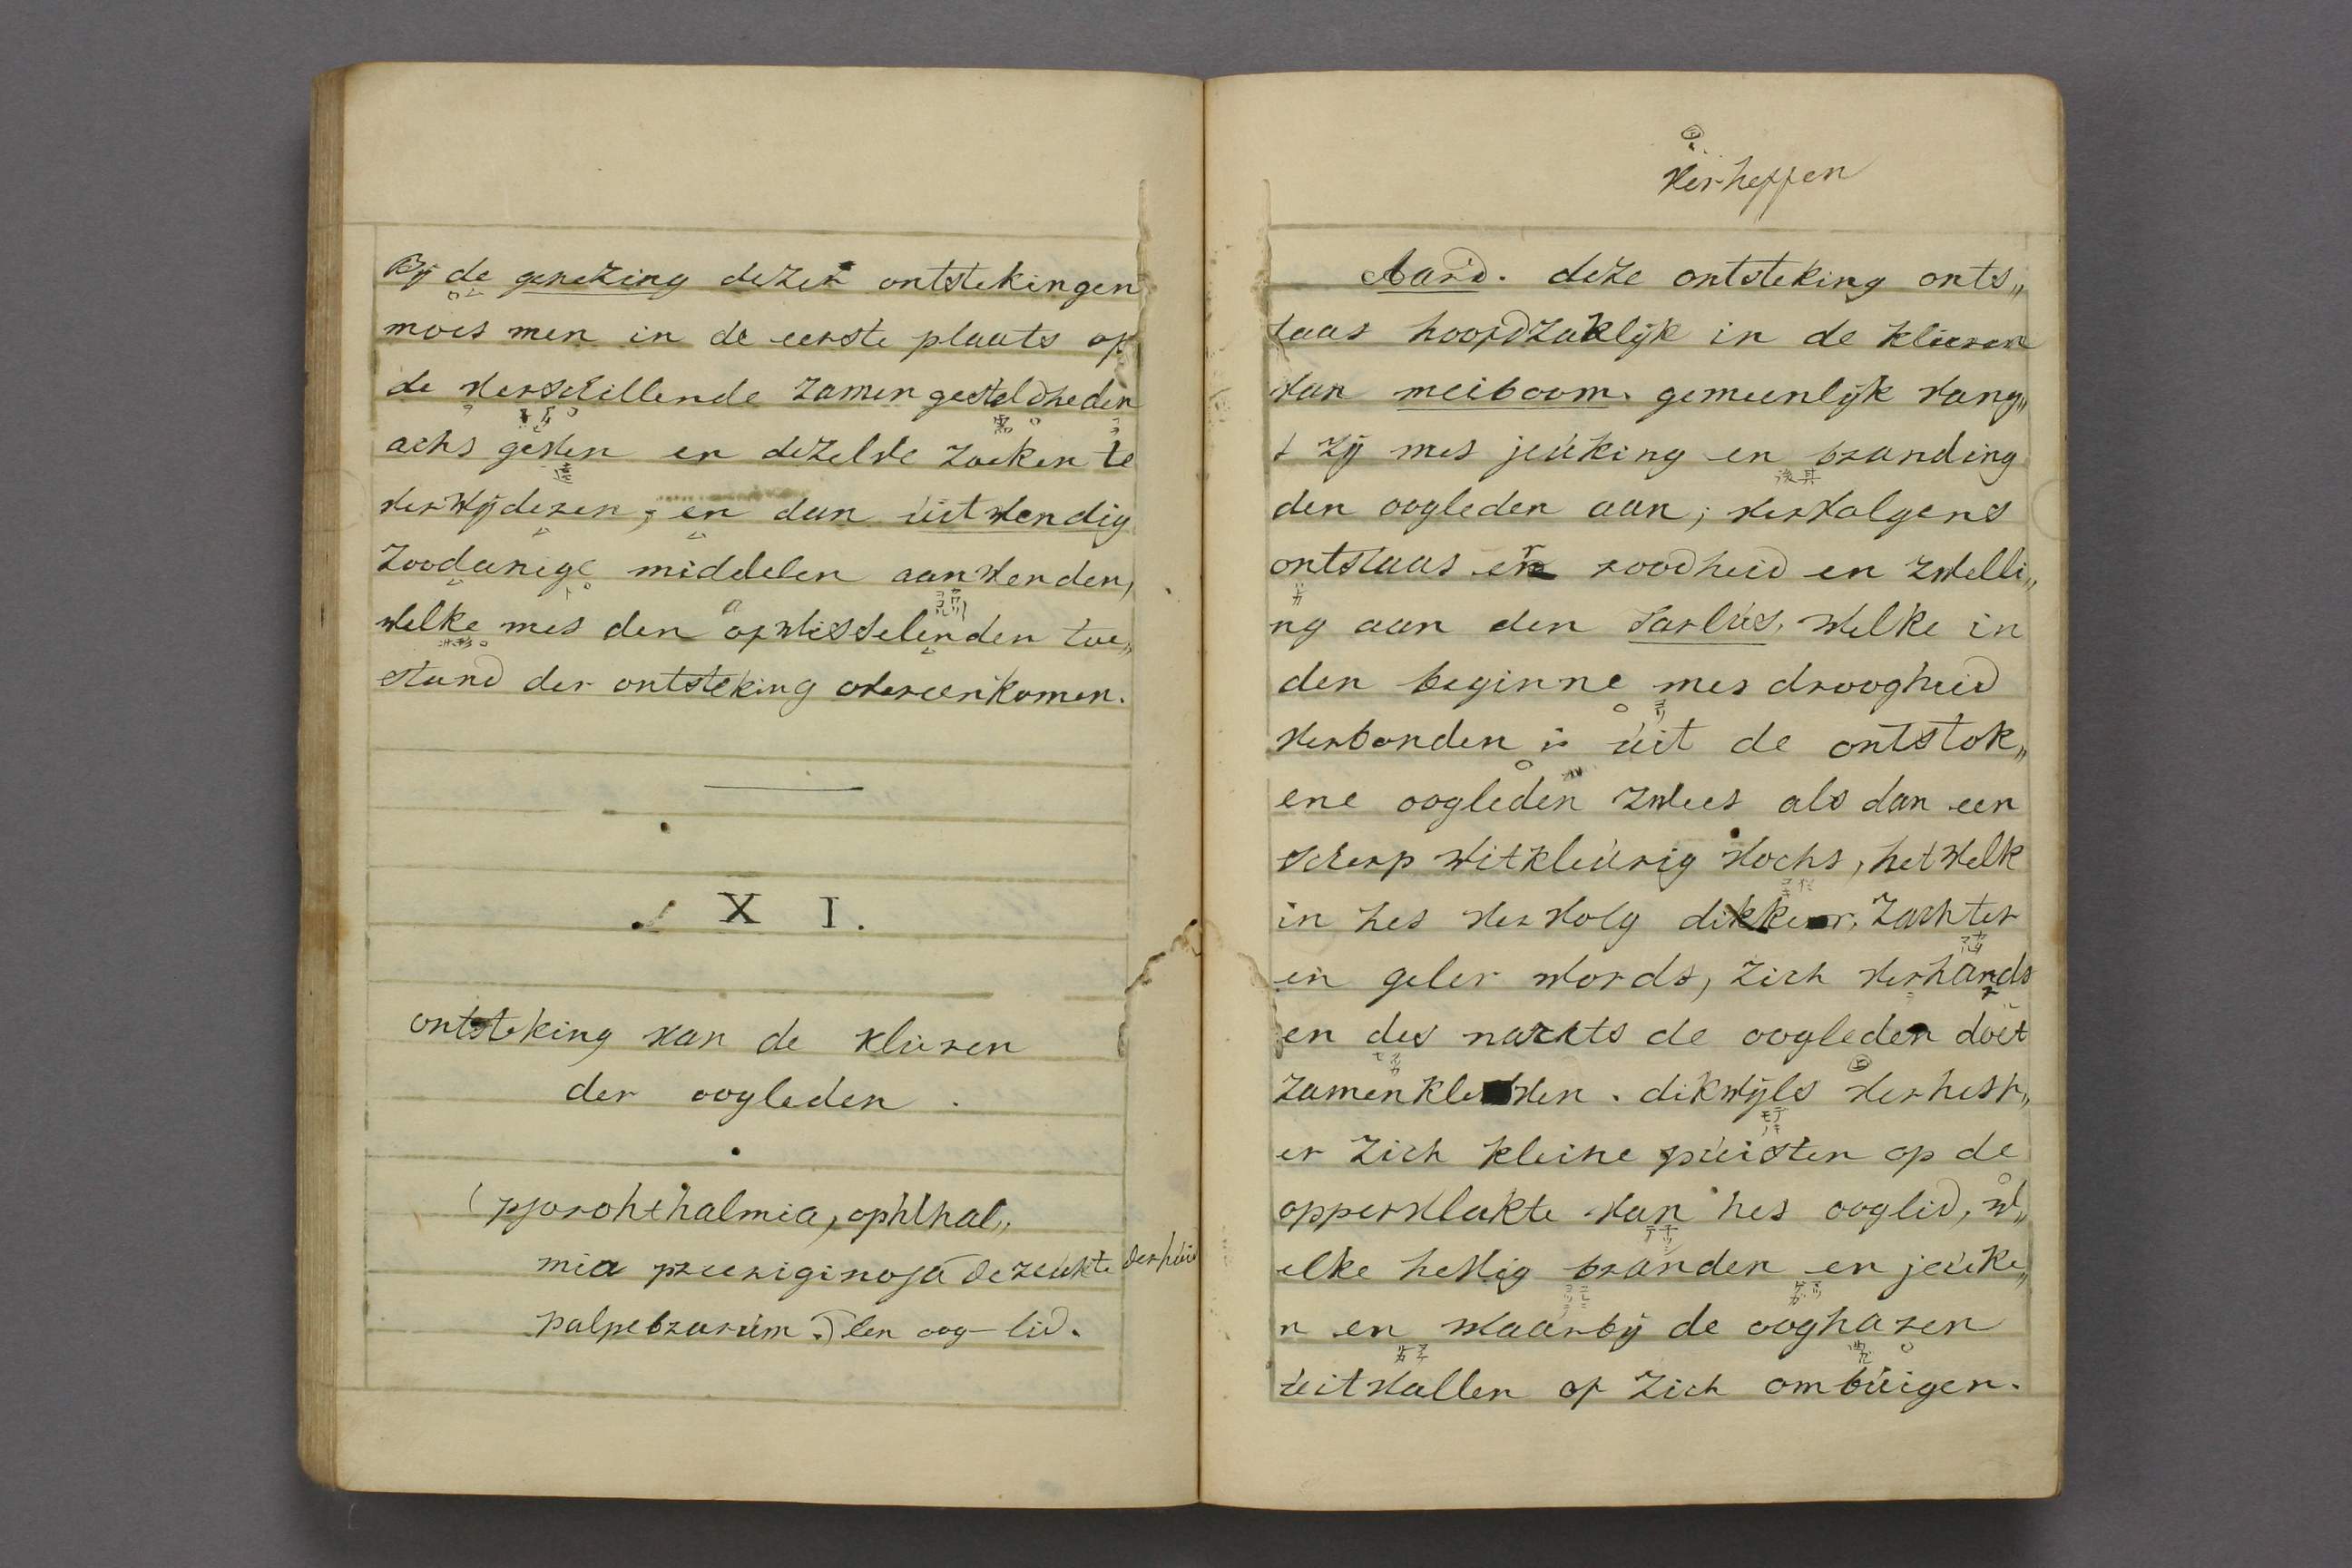 Bij de genezing dezer ontstekingen
moet men in de eerste plaats op
de verschillende zamengesteldheden
acht geven en dezelve zoeken te
verwijderen, en dan uitwendig
zoodanige middelen aanwenden,
welke met den afwisselenden toe„
stand der ontsteking overeenkomen.
XI.
ontsteking van de klieren
der oogleden.
(psorohthalmia, ophthal„
mia pruriginosa de zeukte der huid
palpebrarum.) den oog-lid.
verheffen
Aard. deze ontsteking onts„
taat hoofdzaklijk in de klieren
van meiboom. gemeenlijk vang„
t zij met jeuking en branding
den oogleden aan; vervolgens
ontstaat er roodheid en zwelli„
ng aan den Tarsus, welke in
den beginne met droogheid
verbonden is uit de ontstok„
ene oogleden zweet als dan een
scherp witkleurig vocht, hetwelk
in het vervolg dikker, zachter
en geler wordt, zich verhardt
en des nachts de oogleden doet
zamenkleven. dikwijls verheft„
er zich kleine puisten op de
oppervlakte van het ooglid, w„
elke hevig branden en jeuke„
n en waarbij de oogharen
uitvallen of zich ombuigen.